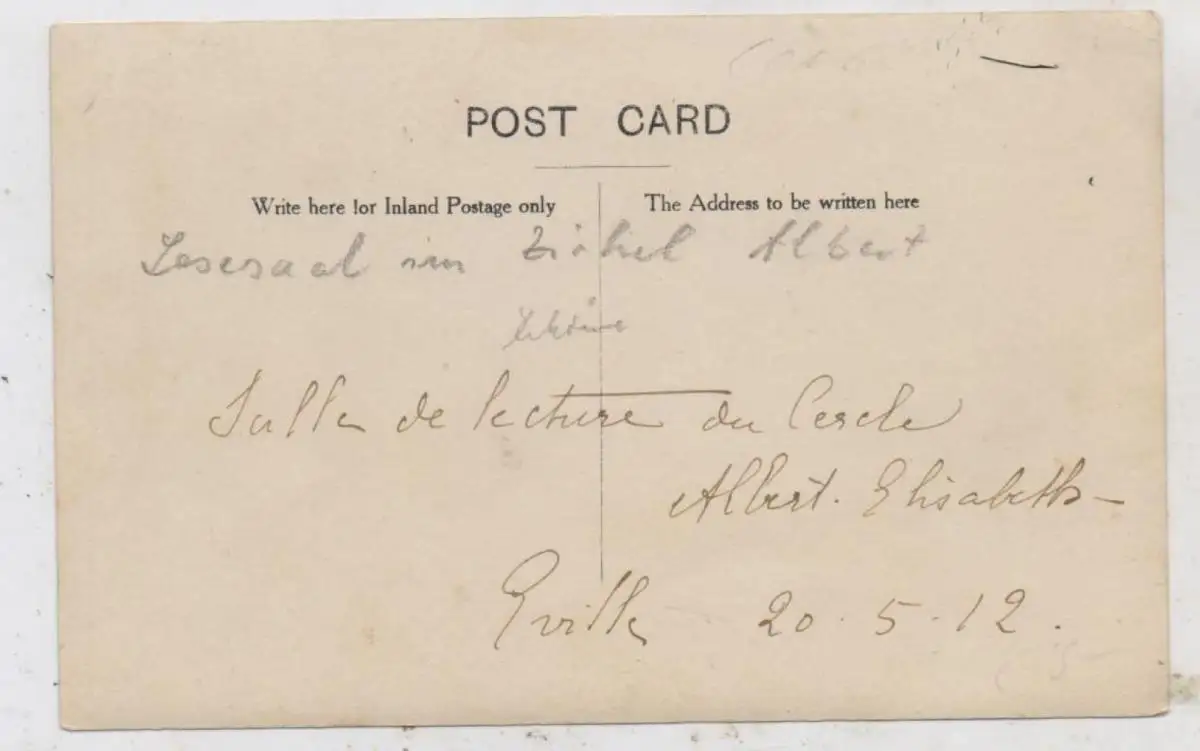 POST CARD
Write here for Inland Postage only
The Address to be written here
Lesesaal im Zirkel Albert
Salle de lecture du Cercle
Albert. Elisabeth -
Eville 20.5.12.